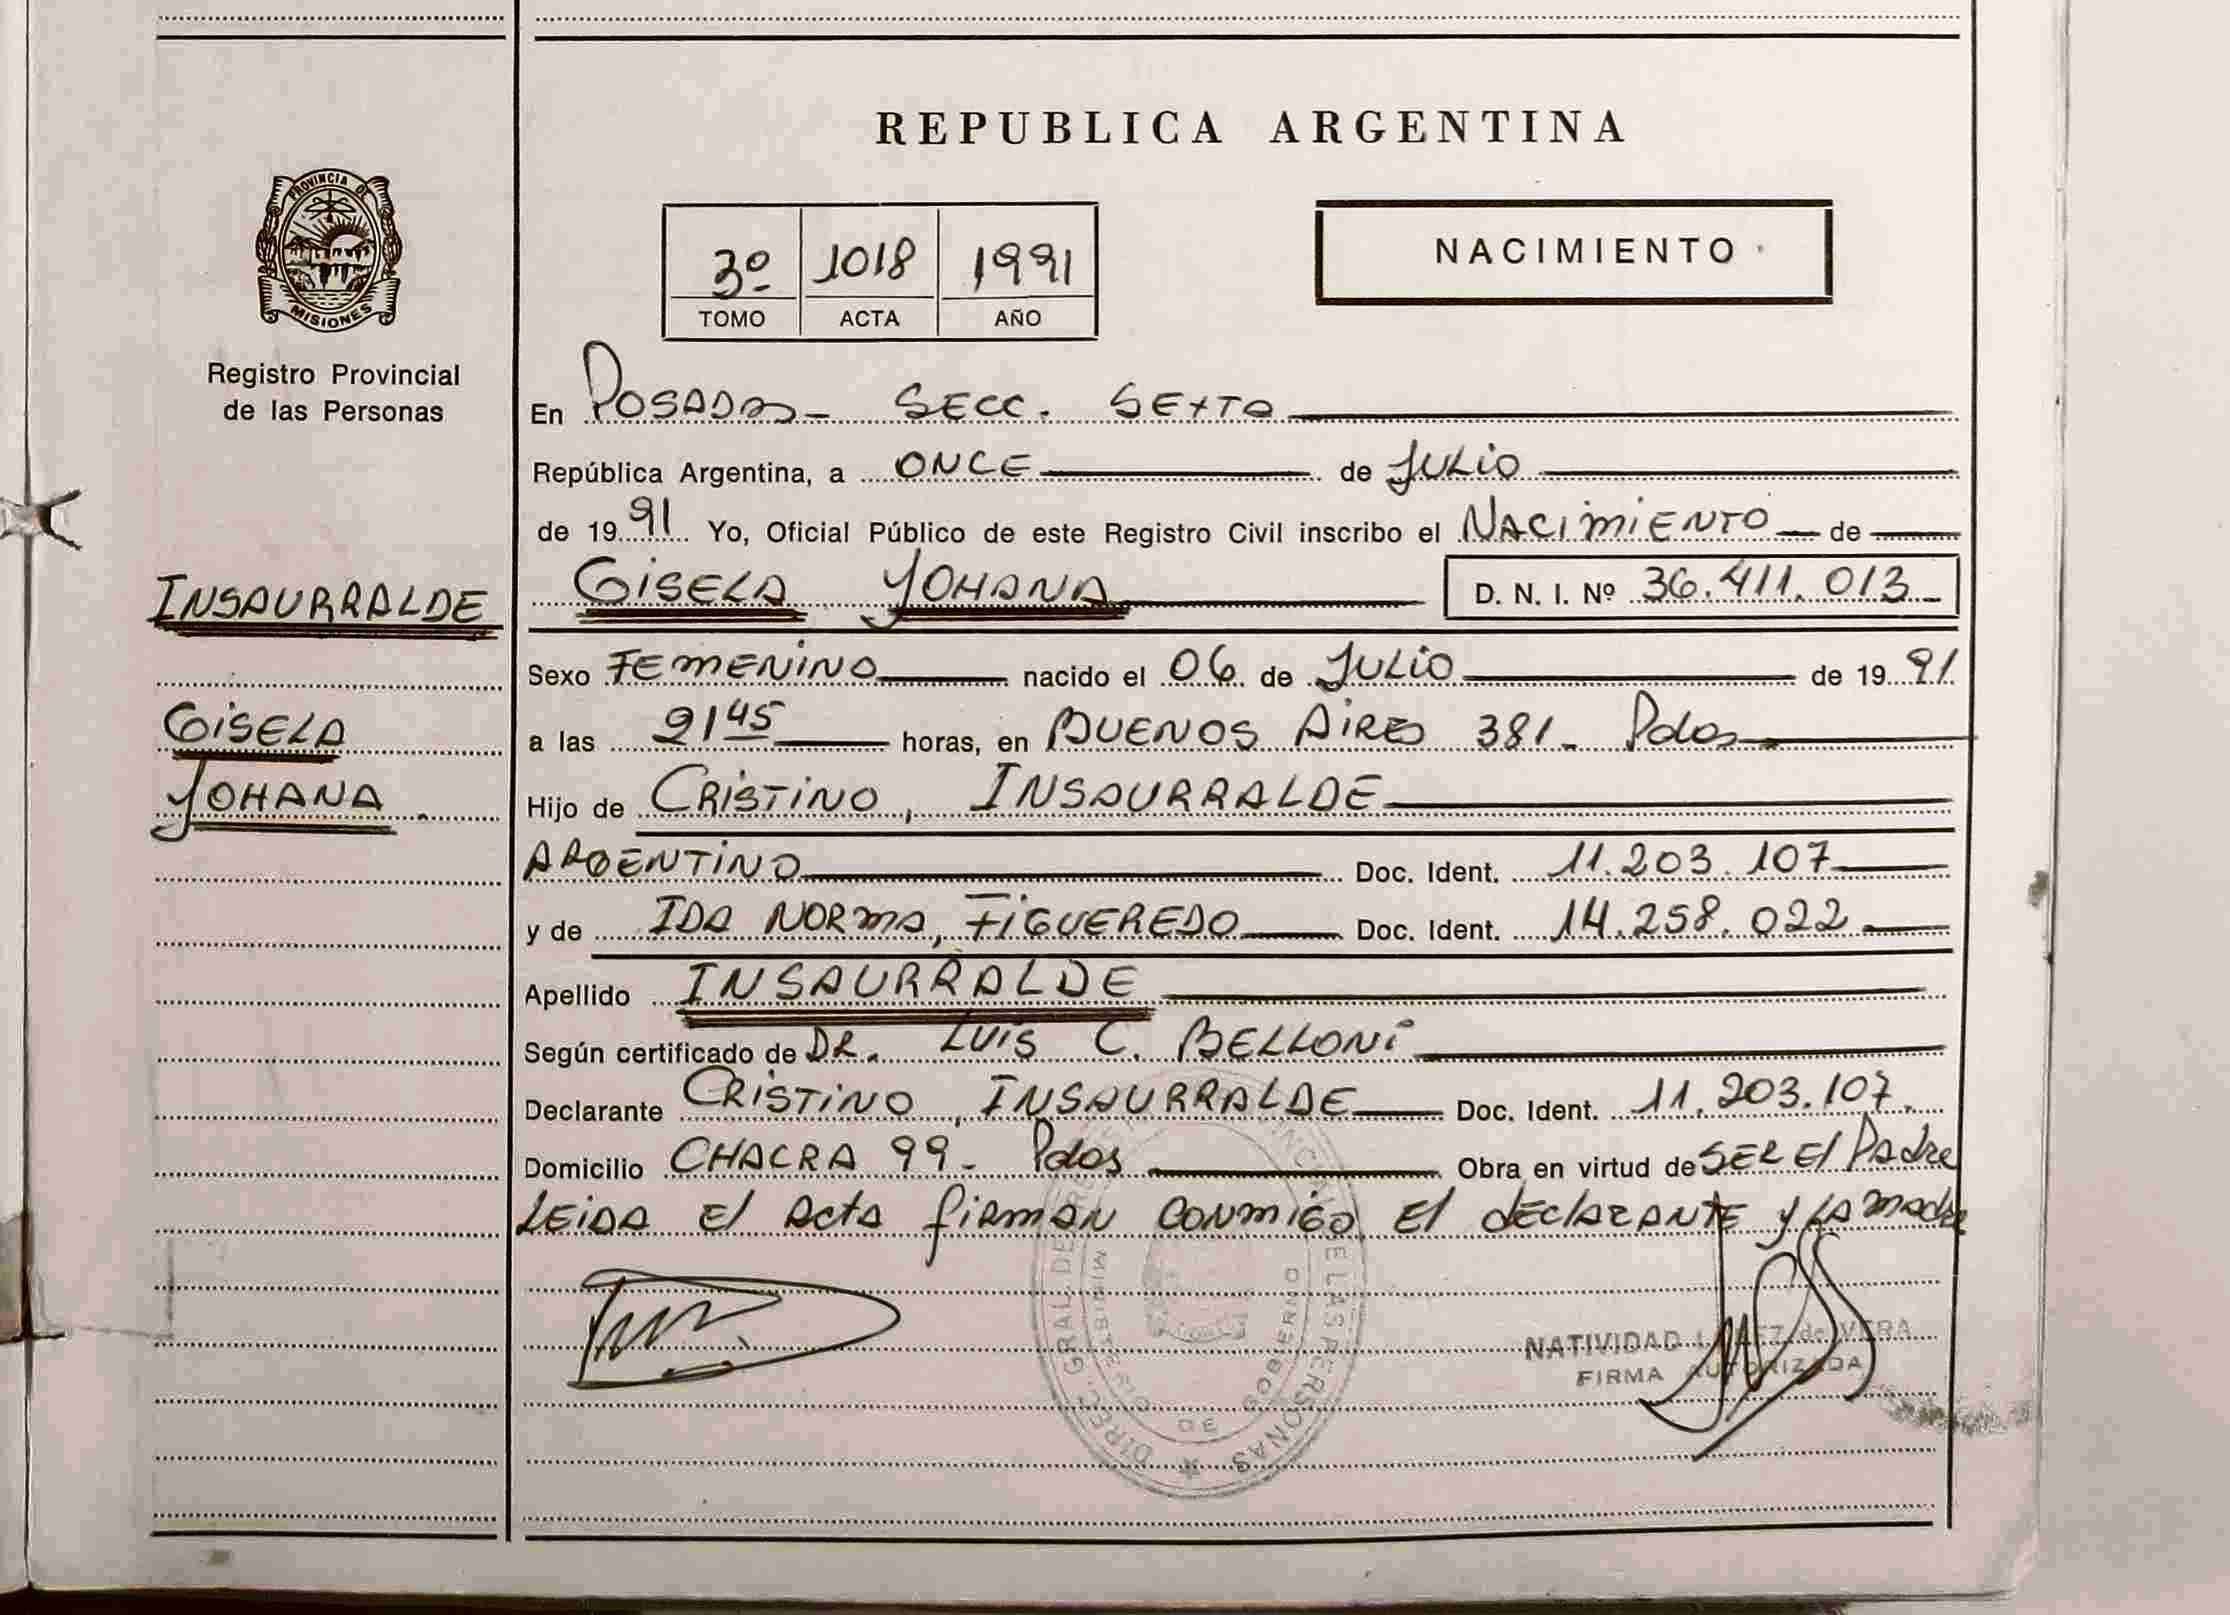 REPUBLICA ARGENTINA
PROVINCIA DE
MISIONES
Registro Provincial
de las Personas
3º 1018 1991
TOMO ACTA AÑO
NACIMIENTO
En POSADAS - SECC. SEXTA
República Argentina, a ONCE de JULIO
de 1991 Yo, Oficial Público de este Registro Civil inscribo el NACIMIENTO de
INSAURRALDE
GISELA YOHANA D. N. I. Nº 36.411.013
Sexo FEMENINO nacido el 06 de JULIO de 1991
GISELA
YOHANA
a las 2145 horas, en BUENOS AIRES 381 - Pdas
Hijo de CRISTINO, INSAURRALDE
ARGENTINO Doc. Ident. 11.203.107
y de IDA NORMA, FIGUEREDO Doc. Ident. 14.258.022
Apellido INSAURRALDE
Según certificado de DR. LUIS C. BELLONI
Declarante CRISTINO, INSAURRALDE Doc. Ident. 11.203.107.
Domicilio CHACRA 99 - Pdas Obra en virtud de SER El Padre
LEIDA El Acta firman conmigo El declarante y la madre
DIREC. GRAL DE LAS PERSONAS
MINISTERIO DE GOBIERNO
NATIVIDAD de VERA
FIRMA AUTORIZADA